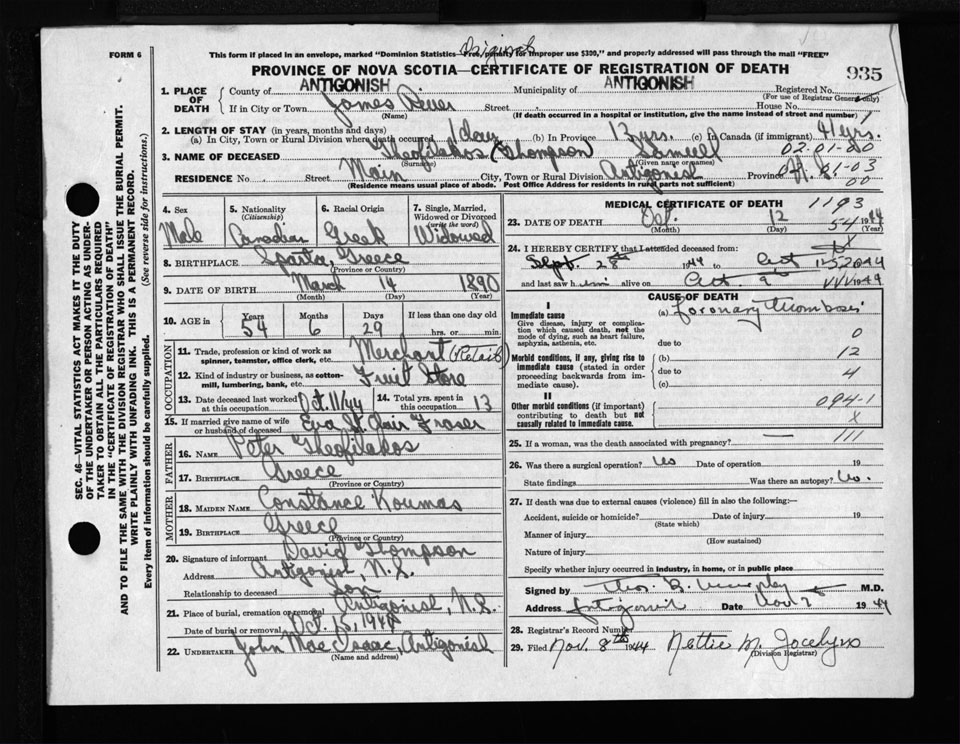 Original
FORM 6
This form if placed in an envelope, marked "Dominion Statistics—Free, penalty for improper use $300," and properly addressed will pass through the mail "FREE"
PROVINCE OF NOVA SCOTIA—CERTIFICATE OF REGISTRATION OF DEATH
935
1. PLACE OF DEATH
County of ANTIGONISH Municipality of ANTIGONISH Registered No.
(For use of Registrar General only)
If in City or Town James River Street House No.
(Name) (If death occurred in a hospital or institution, give the name instead of street and number)
2. LENGTH OF STAY (in years, months and days)
(a) In City, Town or Rural Division where death occurred 1 day (b) In Province 13 yrs. (c) In Canada (if immigrant) 41 yrs.
02-01-00
3. NAME OF DECEASED Theofilakos (Thompson Samuel
(Surname) (Given name or names)
RESIDENCE No. Street Main City, Town or Rural Division Antigonish Province N.S.
01-03
00
(Residence means usual place of abode. Post Office Address for residents in rural parts not sufficient)
4. Sex Male
5. Nationality (Citizenship) Canadian
6. Racial Origin Greek
7. Single, Married, Widowed or Divorced (write the word) Widowed
8. BIRTHPLACE Sparta, Greece
(Province or Country)
9. DATE OF BIRTH March 14 1890
(Month) (Day) (Year)
10. AGE in Years 54 Months 6 Days 29 If less than one day hrs. or min.
OCCUPATION
11. Trade, profession or kind of work as spinner, teamster, office clerk, etc. Merchant (Retail)
12. Kind of industry or business, as cotton-mill, lumbering, bank, etc. Fruit Store
13. Date deceased last worked at this occupation Oct. 11/44 14. Total yrs. spent in this occupation 13
15. If married give name of wife or husband of deceased Eva St Clair Fraser
FATHER
16. NAME Peter Theofilakos
17. BIRTHPLACE Greece
(Province or Country)
MOTHER
18. MAIDEN NAME Constance Koumas
19. BIRTHPLACE Greece
(Province or Country)
20. Signature of informant David Thompson
Address Antigonish, N.S.
Relationship to deceased son
21. Place of burial, cremation or removal Antigonish, N.S.
Date of burial or removal Oct. 15, 1944
22. UNDERTAKER John MacIsaac, Antigonish
(Name and address)
MEDICAL CERTIFICATE OF DEATH
1193
23. DATE OF DEATH Oct. 12 1944
54
(Month) (Day) (Year)
24. I HEREBY CERTIFY that I attended deceased from:
Sept. 28th 1944 to Oct 1944
and last saw him alive on Oct. 9th 1944
CAUSE OF DEATH
I
Immediate cause (a) Coronary Thrombosis
Give disease, injury or complication which caused death, not the mode of dying, such as heart failure, asphyxia, asthenia, etc.
due to 0
Morbid conditions, if any, giving rise to immediate cause (stated in order proceeding backwards from immediate cause).
(b) 12
due to 4
(c)
II
Other morbid conditions (if important) contributing to death but not causally related to immediate cause.
094-1
X
25. If a woman, was the death associated with pregnancy? — 111
26. Was there a surgical operation? No Date of operation 19
State findings Was there an autopsy? No.
27. If death was due to external causes (violence) fill in also the following:—
Accident, suicide or homicide? Date of injury 19
(State which)
Manner of injury
(How sustained)
Nature of injury
Specify whether injury occurred in industry, in home, or in public place
Signed by Thos. B. Murphy M.D.
Address Antigonish Date Nov 7 1944
28. Registrar's Record Number
29. Filed Nov. 8th 1944 Nettie M. Jocelyn
(Division Registrar)
SEC. 46—VITAL STATISTICS ACT MAKES IT THE DUTY
OF THE UNDERTAKER OR PERSON ACTING AS UNDER-
TAKER TO OBTAIN ALL THE PARTICULARS REQUIRED
IN THE "CERTIFICATE OF REGISTRATION OF DEATH"
AND TO FILE THE SAME WITH THE DIVISION REGISTRAR WHO SHALL ISSUE THE BURIAL PERMIT.
WRITE PLAINLY WITH UNFADING INK. THIS IS A PERMANENT RECORD.
Every item of information should be carefully supplied. (See reverse side for instructions.)